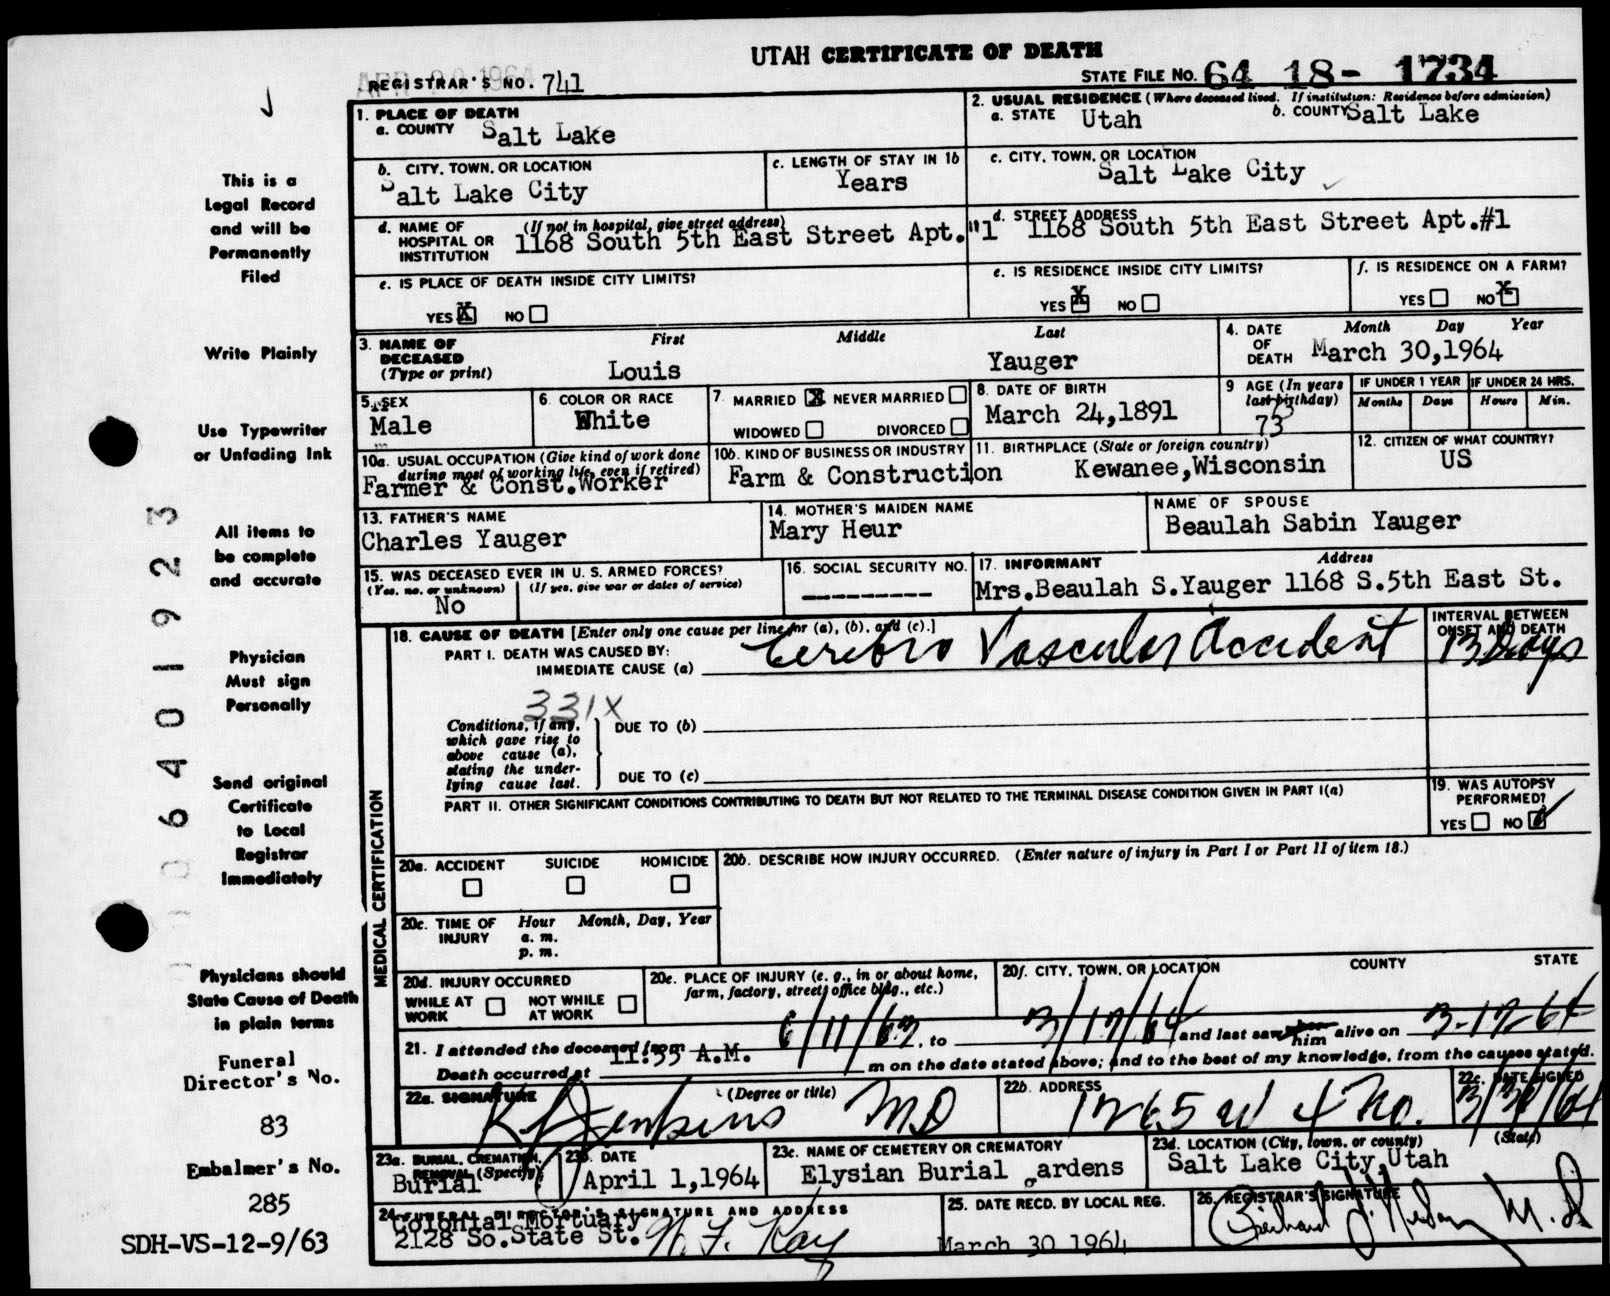 UTAH CERTIFICATE OF DEATH
REGISTRAR'S NO. 741
STATE FILE NO. 64 18- 1734
1. PLACE OF DEATH
a. COUNTY Salt Lake
2. USUAL RESIDENCE (Where deceased lived. If institution: Residence before admission)
a. STATE Utah b. COUNTY Salt Lake
b. CITY, TOWN, OR LOCATION
Salt Lake City
c. LENGTH OF STAY IN 1b
Years
c. CITY, TOWN, OR LOCATION
Salt Lake City
d. NAME OF HOSPITAL OR INSTITUTION (If not in hospital, give street address)
1168 South 5th East Street Apt.#1
d. STREET ADDRESS
1168 South 5th East Street Apt.#1
e. IS PLACE OF DEATH INSIDE CITY LIMITS?
YES X NO
e. IS RESIDENCE INSIDE CITY LIMITS?
YES X NO
f. IS RESIDENCE ON A FARM?
YES NO X
3. NAME OF DECEASED (Type or print)
First Middle Last
Louis Yauger
4. DATE OF DEATH Month Day Year
March 30,1964
5. SEX
Male
6. COLOR OR RACE
White
7. MARRIED X NEVER MARRIED
WIDOWED DIVORCED
8. DATE OF BIRTH
March 24,1891
9 AGE (In years last birthday)
73
IF UNDER 1 YEAR IF UNDER 24 HRS.
Months Days Hours Min.
10a. USUAL OCCUPATION (Give kind of work done during most of working life, even if retired)
Farmer & Const.Worker
10b. KIND OF BUSINESS OR INDUSTRY
Farm & Construction
11. BIRTHPLACE (State or foreign country)
Kewanee,Wisconsin
12. CITIZEN OF WHAT COUNTRY?
US
13. FATHER'S NAME
Charles Yauger
14. MOTHER'S MAIDEN NAME
Mary Heur
NAME OF SPOUSE
Beaulah Sabin Yauger
15. WAS DECEASED EVER IN U. S. ARMED FORCES?
(Yes, no, or unknown) (If yes, give war or dates of service)
No
16. SOCIAL SECURITY NO.
---------
17. INFORMANT Address
Mrs.Beaulah S.Yauger 1168 S.5th East St.
MEDICAL CERTIFICATION
18. CAUSE OF DEATH [Enter only one cause per line for (a), (b), and (c).]
PART I. DEATH WAS CAUSED BY:
IMMEDIATE CAUSE (a) Cerebro Vascular Accident
INTERVAL BETWEEN ONSET AND DEATH
13 Days
331X
Conditions, if any, which gave rise to above cause (a), stating the underlying cause last.
DUE TO (b)
DUE TO (c)
PART II. OTHER SIGNIFICANT CONDITIONS CONTRIBUTING TO DEATH BUT NOT RELATED TO THE TERMINAL DISEASE CONDITION GIVEN IN PART I(a)
19. WAS AUTOPSY PERFORMED?
YES NO
20a. ACCIDENT SUICIDE HOMICIDE
20b. DESCRIBE HOW INJURY OCCURRED. (Enter nature of injury in Part I or Part II of item 18.)
20c. TIME OF INJURY Hour Month, Day, Year
a. m.
p. m.
20d. INJURY OCCURRED
WHILE AT WORK NOT WHILE AT WORK
20e. PLACE OF INJURY (e. g., in or about home, farm, factory, street, office bldg., etc.)
20f. CITY, TOWN, OR LOCATION COUNTY STATE
21. I attended the deceased from 6/11/63, to 3/17/64 and last saw him alive on 3-17-64
Death occurred at 11:55 A.M. m on the date stated above; and to the best of my knowledge, from the causes stated.
22a. SIGNATURE (Degree or title)
Jenkins MD
22b. ADDRESS
1265 W 4 No.
22c. DATE SIGNED
3/31/64
23a. BURIAL, CREMATION, REMOVAL (Specify)
Burial
23b. DATE
April 1,1964
23c. NAME OF CEMETERY OR CREMATORY
Elysian Burial Gardens
23d. LOCATION (City, town, or county) (State)
Salt Lake City,Utah
24. FUNERAL DIRECTOR'S SIGNATURE AND ADDRESS
Colonial Mortuary
2128 So.State St. W. F. Kay
25. DATE RECD. BY LOCAL REG.
March 30 1964
26. REGISTRAR'S SIGNATURE
M.D
This is a
Legal Record
and will be
Permanently
Filed
Write Plainly
Use Typewriter
or Unfading Ink
All items to
be complete
and accurate
Physician
Must sign
Personally
Send original
Certificate
to Local
Registrar
Immediately
Physicians should
State Cause of Death
in plain terms
Funeral
Director's No.
83
Embalmer's No.
285
SDH-VS-12-9/63